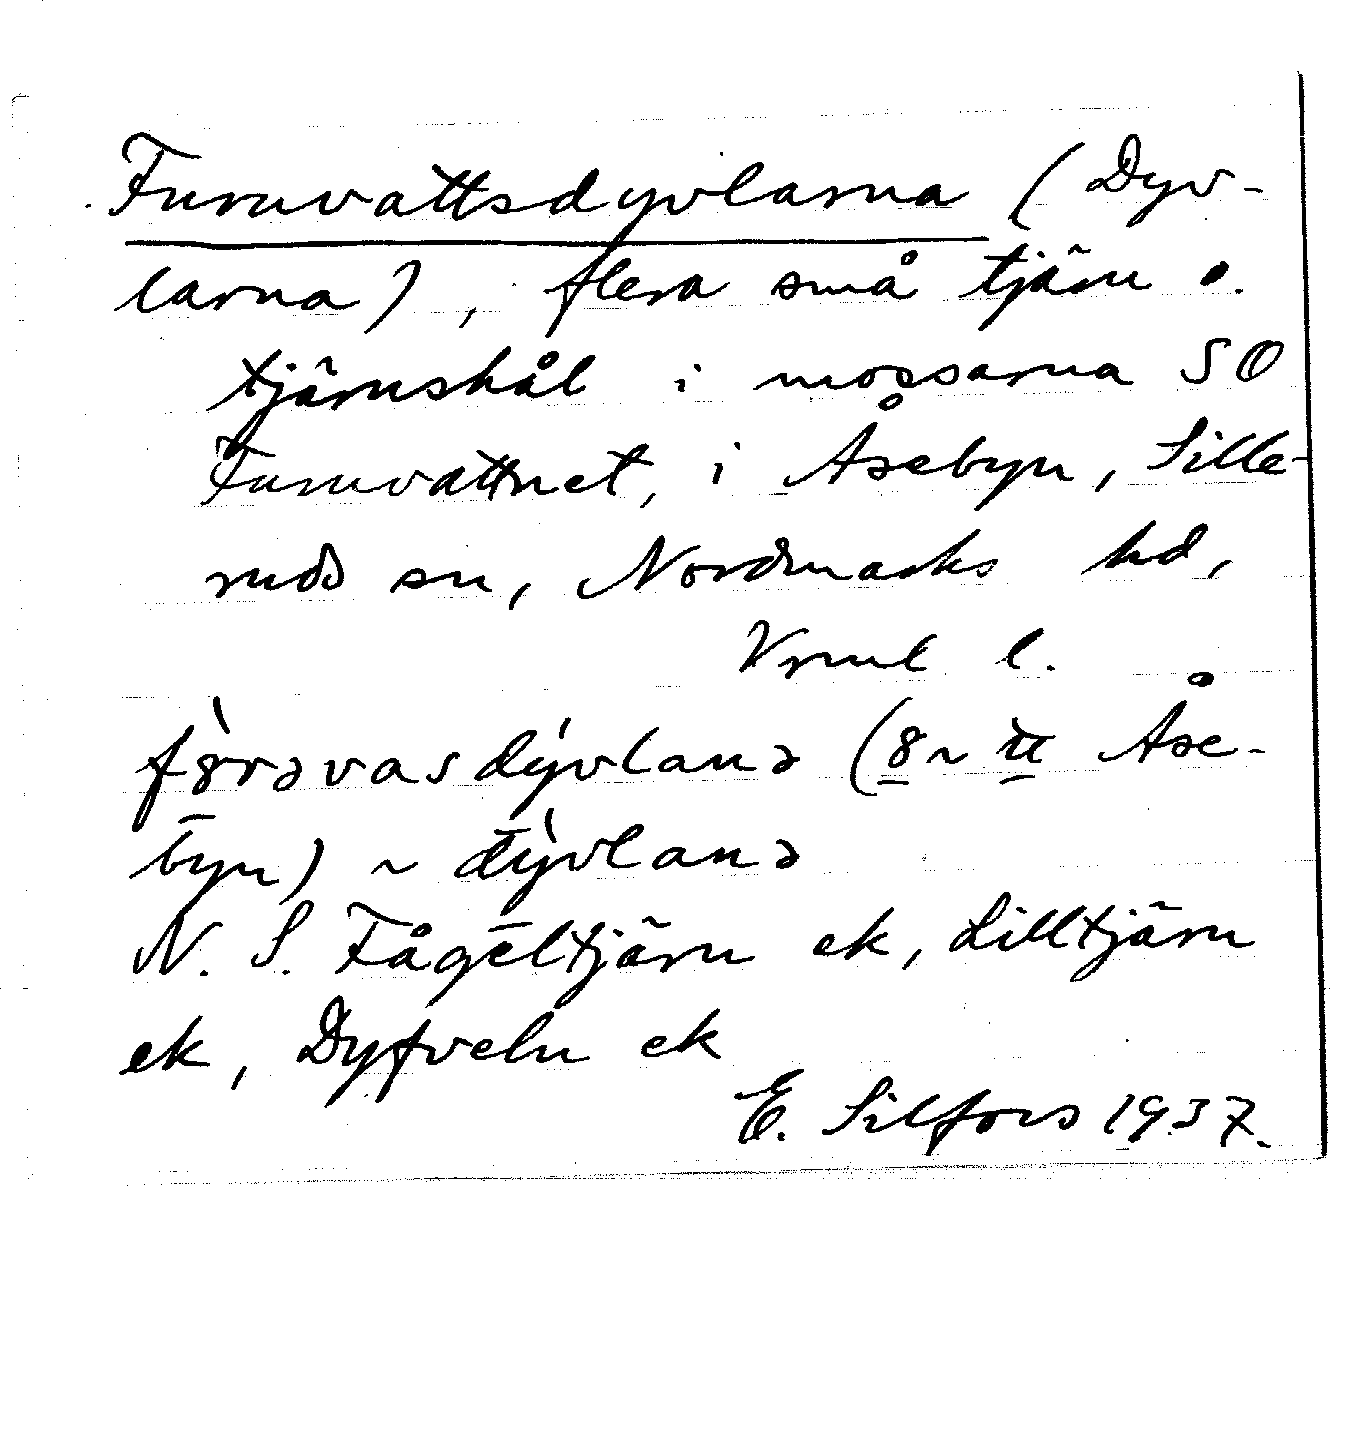 Furuvattsdyvlarna (Dyv-
larna), flera små tjärn o.
tjärnshål i mossarna SO
Furuvattnet, i Åsebyn, Sille-
ruds sn, Nordmarks hd,
Vrml l.
N. S. Fågeltjärn ek, Lilltjärn
ek, Dyfveln ek
E. Silfors 1937.